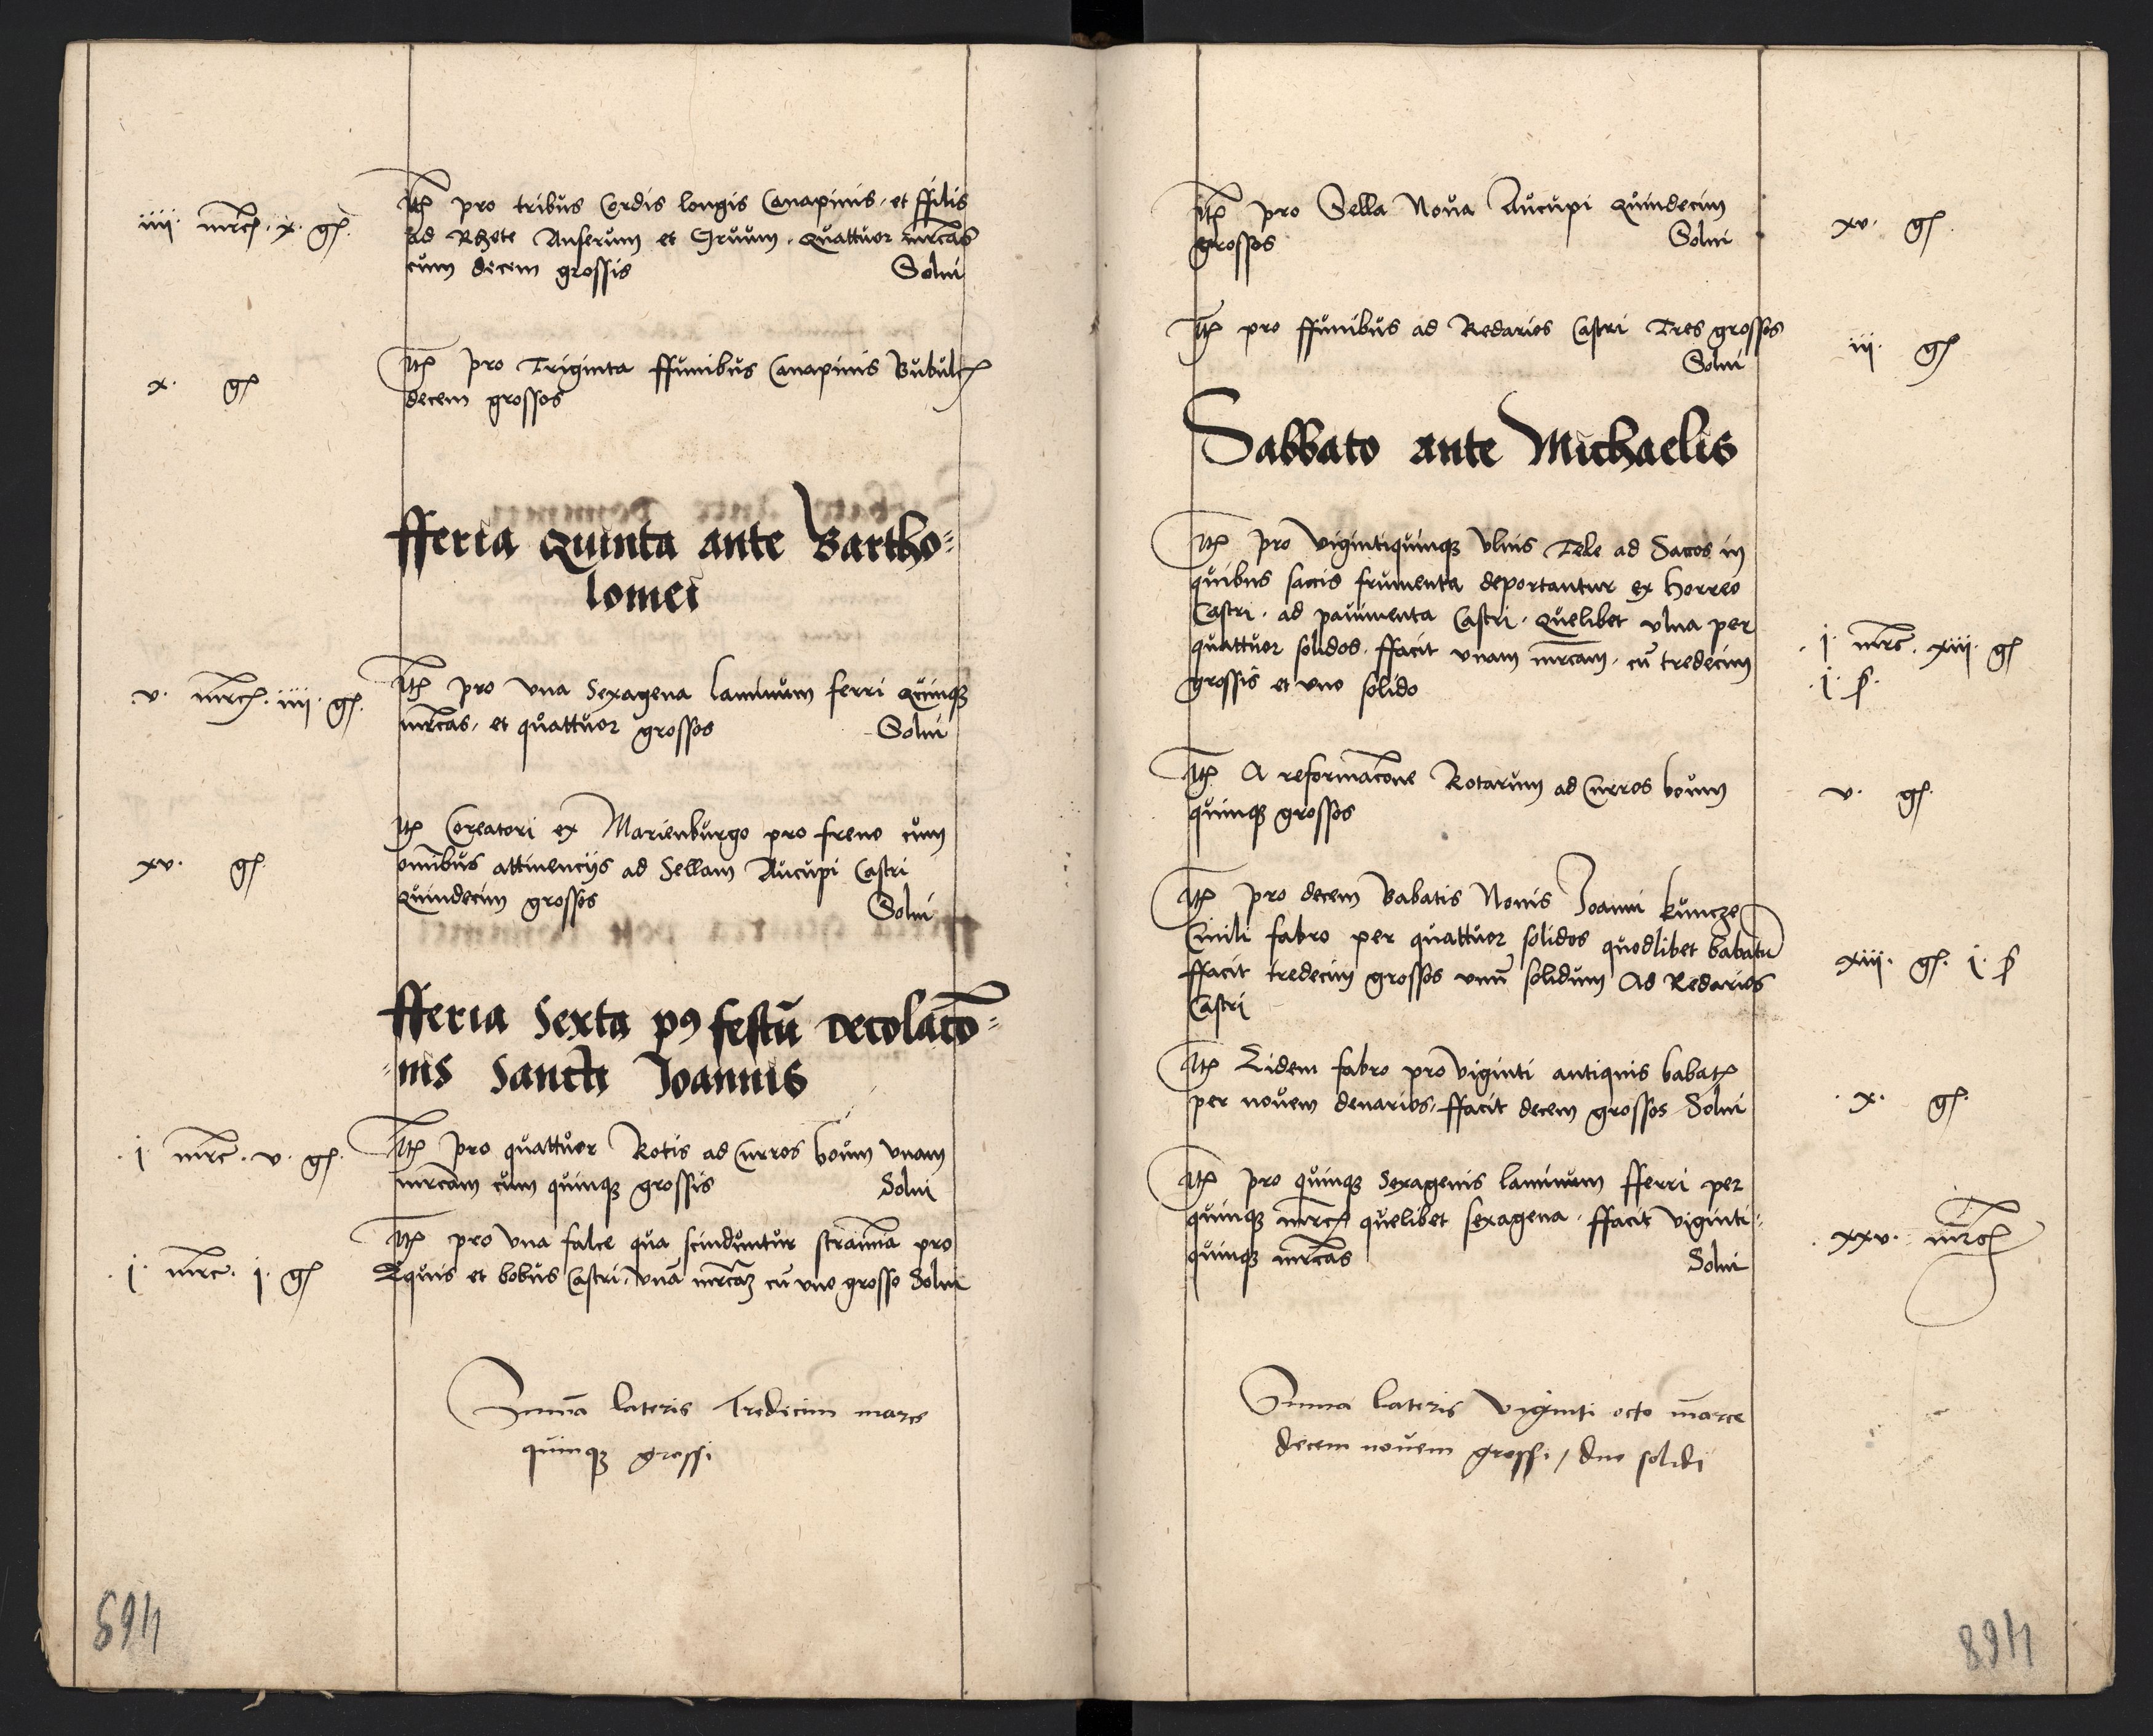 iiii. mrc. x. gſ. Itē pro tribus Cordis longis Canapinis, et ffilis
ad Rhete Anserum et Gruum. quattuor mrcas
cum decem grossis Solui
x. gſ Itē pro Triginta ffunibus Canapinis Bubulcꝫ
decem grossos
fferia quinta ante Bartho=
lomei
.v. mrc. iiii. gſ. Itē pro vna Sexagena laminum ferri quinqꝫ
mrcas, et quattuor grossos Solui
xv. gſ. Itē Coreatori ex Marienburgo pro freno cum
omībus attinencijs ad Sellam Aucupi Castri
quindecim grossos Solui
fferia Sexta pꝰ festū decolacō=
=nis Sancti Joannis
.j. mrc. v. gſ. Itē pro quattuor Rotis ad Currus boum vnam
mrcam cum quinqꝫ grossis Solui
.j. mrc. j. gſ Itē pro vna falce qua scinduntur stramīa pro
Equis et bobus Castri, vnā mrcaꝫ cū vno grosso Solui
Summa lateris Tredicim marce
quinqꝫ grossi
469
Itē pro Sella Noua Aucupi quindecim
grossos Solui xv. gſ.
Itē pro ffunibus ad Redarios Castri Tres grossos
Solui iij. gſ
Sabbato ante Michaelis
Itē pro vigintiquinqꝫ vlnis Tele ad Saccos in
quibus saccis frumenta deportantur ex horreo
Castri, ad pauimenta Castri, quelibet vlna per
quattuor solidos. ffacit vnam mrcam, cū tredecim .j. mrc. xiii. gſ
grossis et vno solido .j. ſ.
Itē A reformacōne Rotarum ad Currus boum v. gſ.
quinqꝫ grossos
Itē pro decem Babatis Nouis Joanni kuncze
Ciuili fabro per quattuor solidos quodlibet babatū
ffacit tredecim grossos vnū solidum Ad Redarios xiii. gſ. j. ſ
Castri
Itē Eidem fabro pro viginti antiquis babatꝫ
per nouem denarios, ffacit decem grossos Solui .x. gſ.
Itē pro quinqꝫ Sexagenis laminum fferri per
quinqꝫ mrc quelibet sexagena, ffacit viginti= .xxv. mrc
quinqꝫ mrcas Solui
Summa lateris viginti octo marce
decem nouem grossi, duo solidi
468